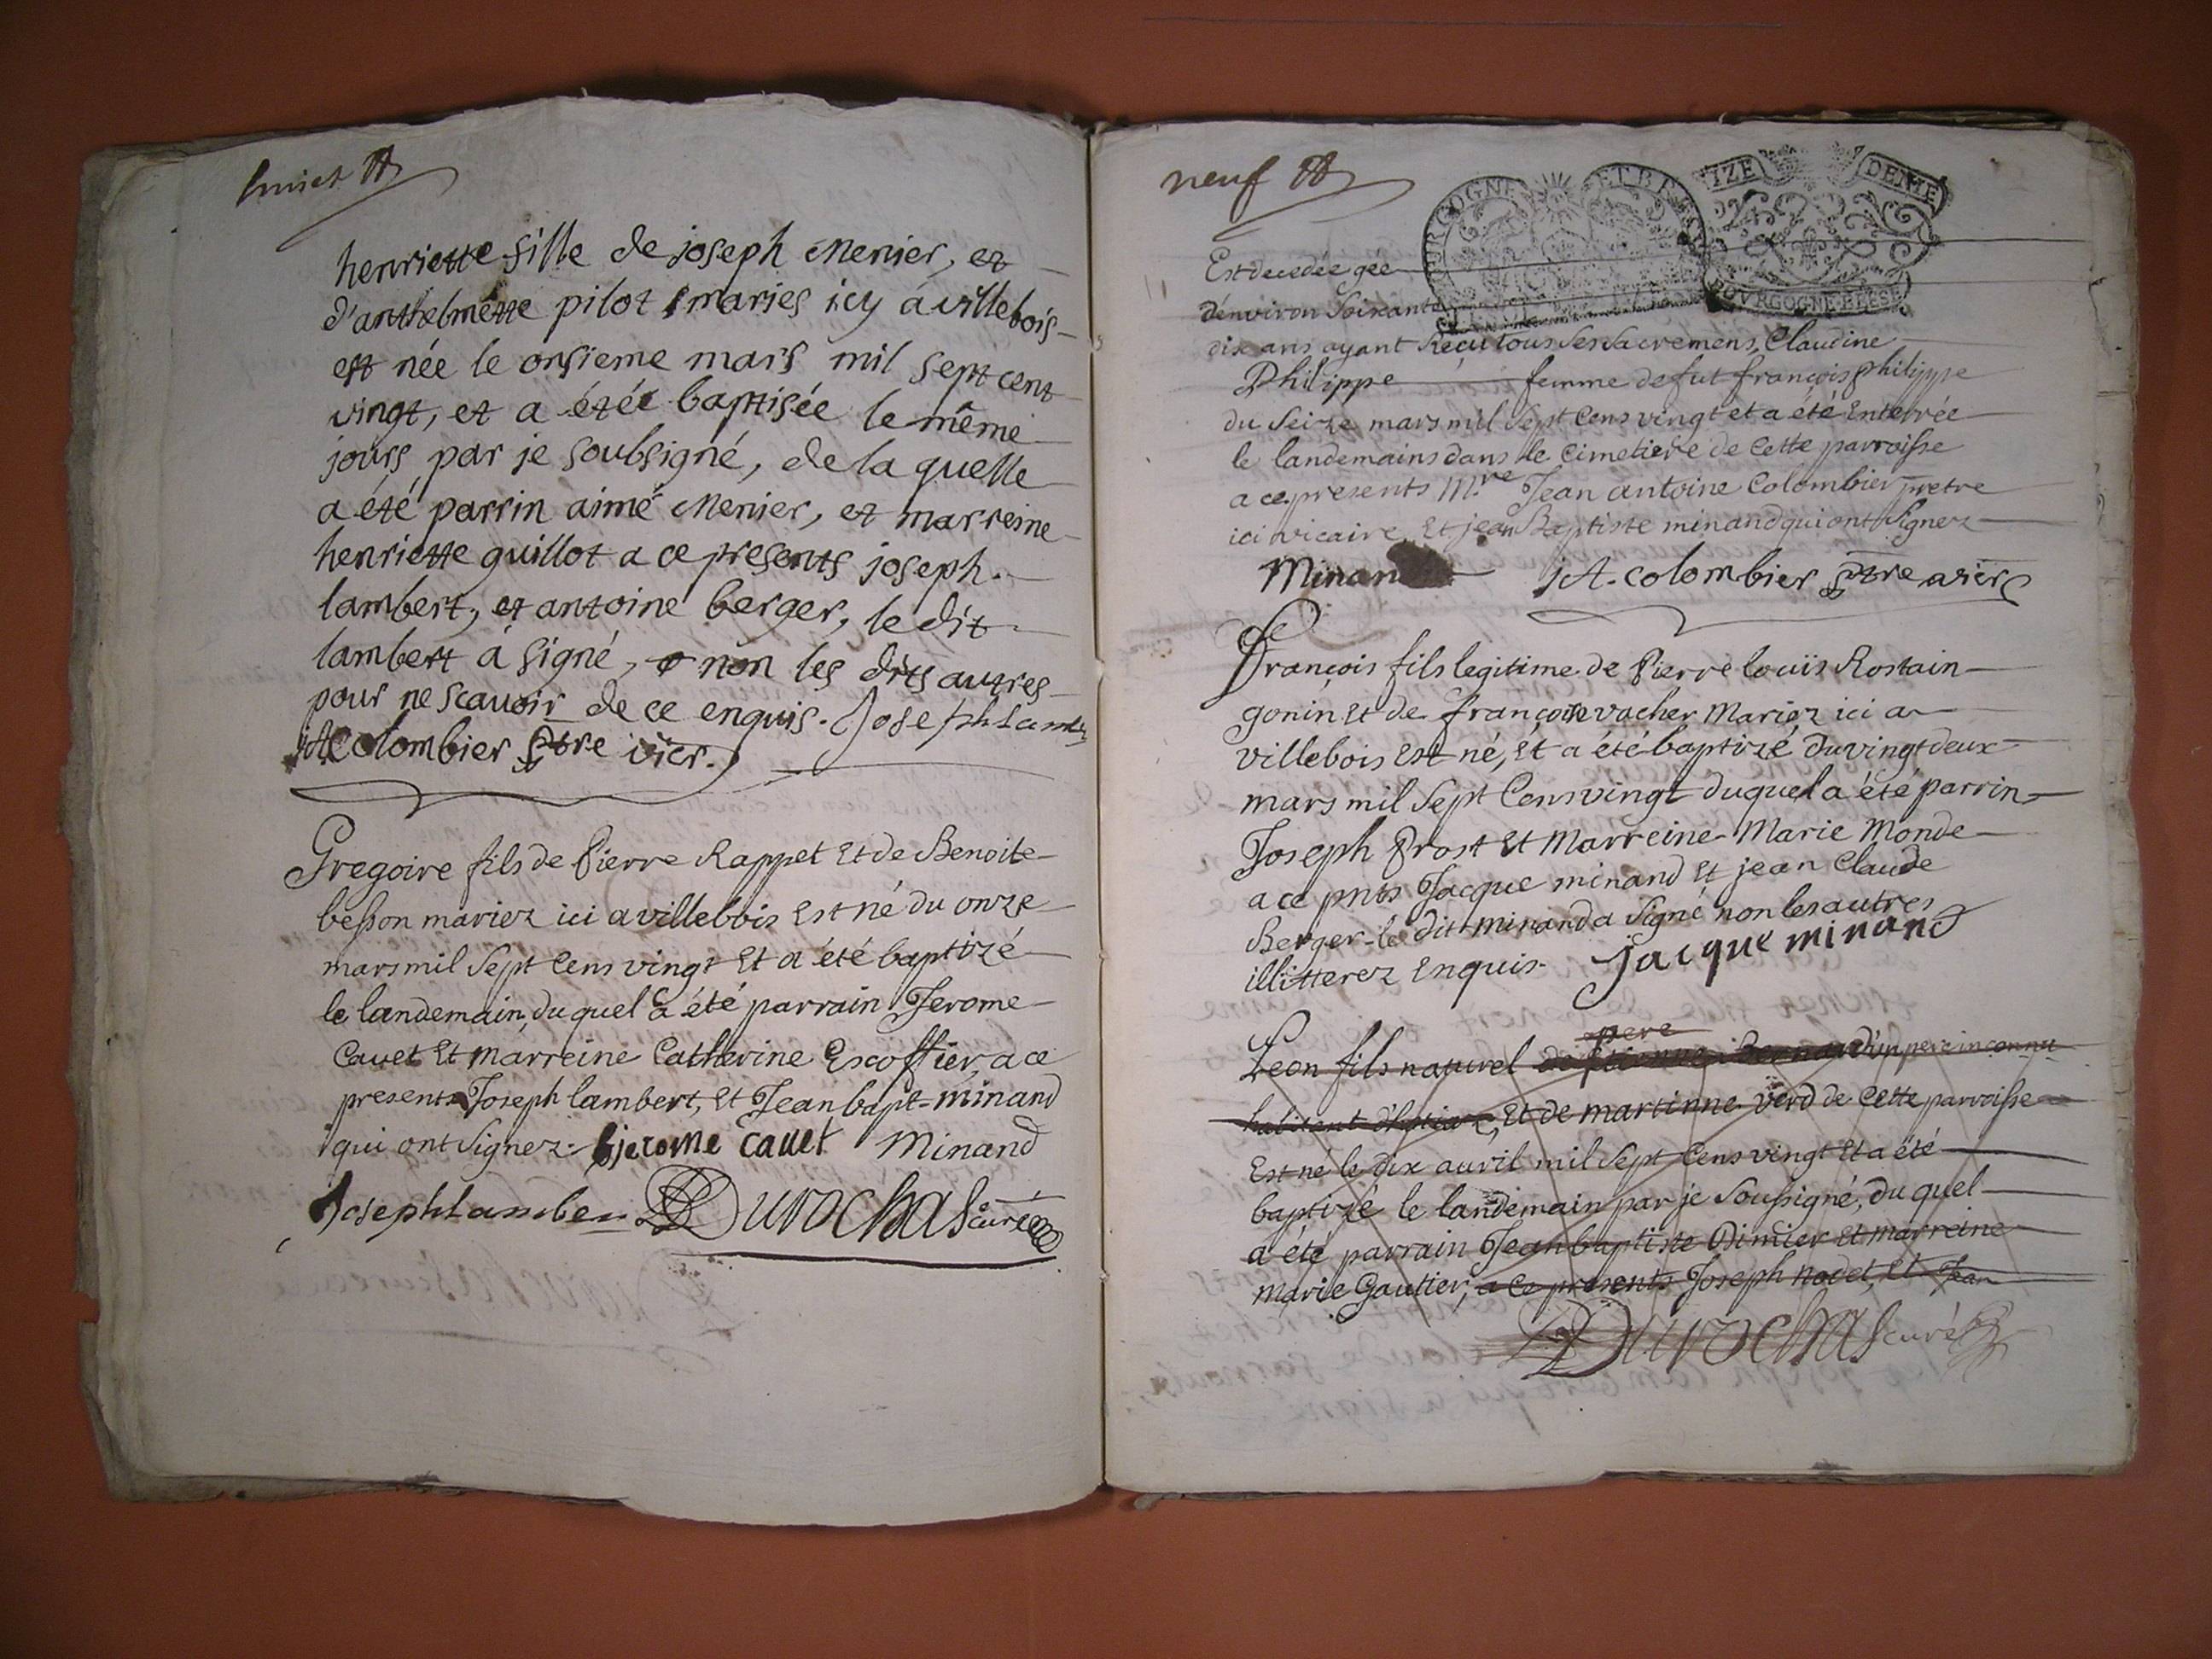 huict
henriette fille de joseph Menier, et
d'anthelmette pilot maries icy à villebois
est née le onsieme mars mil sept cent
vingt, et a étée baptisée le même
jours par je soubsigné, de la quelle
a été parrin aimé Menier, et marreine
henriette guillot a ce presents joseph
lambert, et antoine berger, le dit
lambert à signé, non les dits autres
pour ne scavoir de ce enquis. Joseph Lambe
JA Colombier ptre vicr.
Gregoire fils de Pierre Rappet Et de Benoite
besson mariez ici a villebois Est né du onze
mars mil Sept Cens vingt Et a été baptizé
le landemain, du quel a été parrain Jerome
Cauet Et marreine Catherine Escoffier, a ce
presents Joseph lambert, Et Jean bapt- minand
qui ont Signez. jerome Cauet Minand
Joseph Lamber Durochas curé
neuf
BOURGOGNE ET BRESSE
IZE DENIE
BOVRGOGNE BRESSE
Est decedée gée
d'environ Soixante
dix ans ayant Reçu tous Ses Sacremens, Claudine
Philippe femme de fut françois philippe
du Seize mars mil Sept Cens vingt et a été Enterrée
le landemains dans le Cimetiere de Cette parroisse
a ce presents M.re Jean antoine Colombier pretre
ici vicaire, Et jean Baptiste minand qui ont Signez
Minan JA. colombier ptre vicr
François fils legitime de Pierre louïs Rostain
gonin Et de françoise vacher Mariez ici a
villebois Est né, Et a été baptizé du vingt deux
mars mil Sept Cens vingt duquel a été parrin
Joseph Prost Et Marreine Marie Monde
a ce pnts Jacque minand Et jean Claude
Berger le dit minand a Signé non les autres
illitterez Enquis. jacque minand
pere
Leon fils naturel de Etienne Bernard d'un pere inconnu
habitant Et de martinne verd de Cette parroisse
Est né le dix auvril mil Sept Cens vingt Et a été
baptizé le landemain par je Soussigné, du quel
a été parrain Jean baptiste Dimier Et marreine
marie Gautier, a ce presents Joseph nodet, Et Jean
Durochas curé